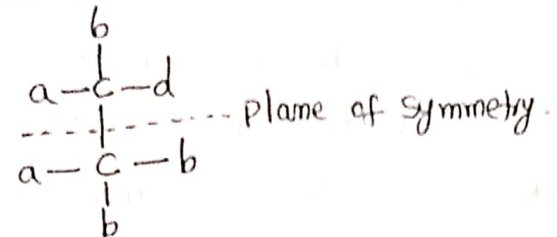 b
a-C-d
plane of symmetry.
a-C-b
b